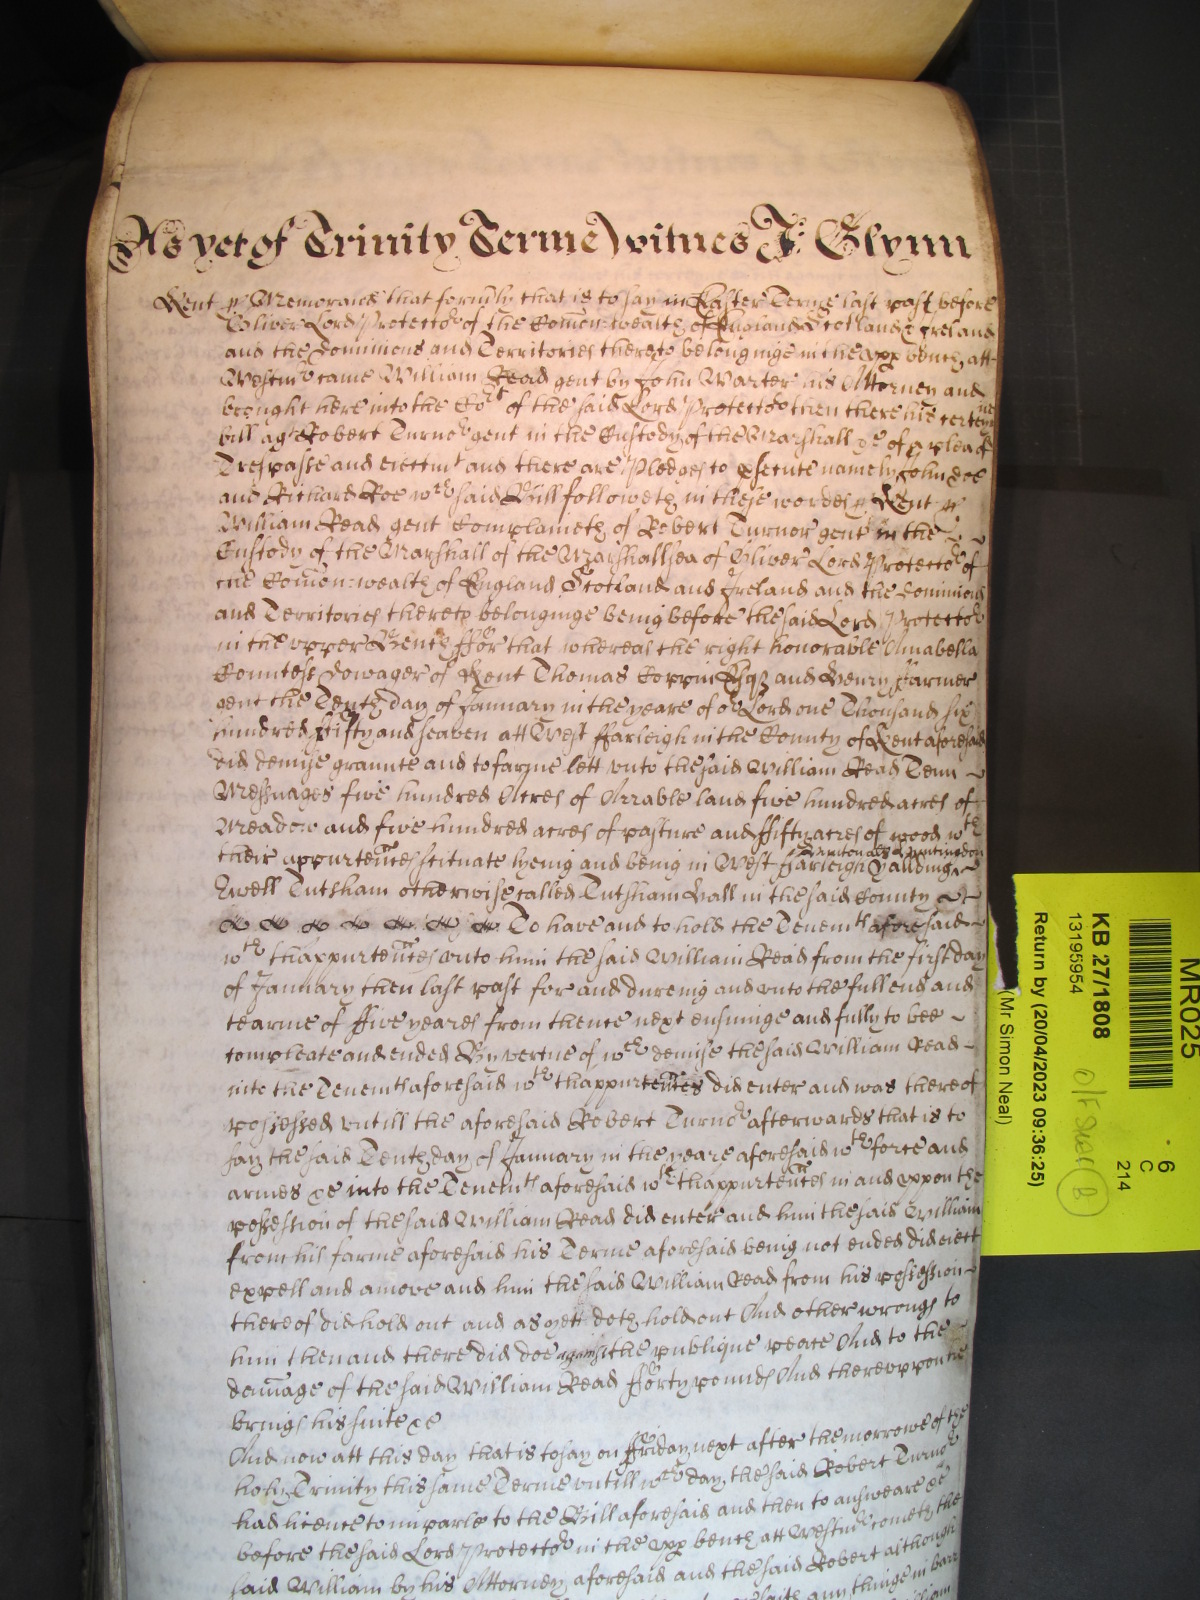 As yet of Trinity Terme witnes J: Glynn
Kent ss Memorand that formly that is to say in Easter Terme last past before
Oliver Lord Protector of the Comon-wealth of England Scotland & Ireland
and the Dominions and Territories thereto belonginge in the upp bench att
Westmr came William Read gent by John Warter his Attorney and
brought here into the Cort of the said Lord Protector then there his certeyne
bill agt Robert Turnor gent in the Custody of the Marshall &c of a plea of
Trespasse and eiectmt and there are Pledges to psecute namely John Doe
and Richard Roe wch said Bill followeth in these wordes ss Kent ss
William Read gent Complaineth of Robert Turnor gent in the
Custody of the Marshall of the Marshallsea of Oliver Lord Protector of
the Comon-wealth of England Scotland and Ireland and the Dominions
and Territories thereto belonginge being before the said Lord Protector
in the upper Bench ffor that whereas the right honorable Amabella
Comtesse Dowager of Kent Thomas Coppin Esqz and Henry Farmer
gent the Tenth day of January in the yeare of or Lord one Thousand six
hundred fifty and seaven att West ffarleigh in the County of Kent aforesaid
did demise graunte and to farme lett unto the said William Read Tenn
Messuages five hundred Acres of Arrable land five hundred acres of
Meadow and five hundred acres of pasture and ffifty acres of wood wth
their appurtences scituate lyeing and being in West ffarleigh Yaldinge
Tutsham otherwise called Tutsham Hall in the said County
To have and to hold the Tenemts aforesaid
wth thappurtences unto him the said William Read from the first day
of January then last past for and dureing and unto the full end and
tearme of ffive yeares from thence next ensuinge and fully to bee
compleate and ended By vertue of wch demise the said William Read
into the Tenemts aforesaid wth thappurtences did enter and was thereof
possessed untill the aforesaid Robert Turnor afterwards that is to
say the said Tenth day of January in the yeare aforesaid wth force and
armes &c into the Tenemts aforesaid wth thappurtences in and uppon the
possession of the said William Read did enter and him the said William
from his farme aforesaid his Terme aforesaid being not ended did eiect
expell and amove and him the said William Read from his possession
thereof did hold out and as yett doth hold out And other wrongs to
him then and there did doe against the publique peace And to the
damage of the said William Read fforty pounds And thereuppon he
brings his suite &c
And now att this day that is to say on ffriday next after the morrowe of the
holy Trinity this same Terme untill wch day the said Robert Turnor
had licence to imparle to the Bill aforesaid and then to answeare &c
before the said Lord Protector in the upp bench att Westmr cometh the
said William by his Attorney aforesaid and the said Robert although
saith any thinge in barr
MR025
6
C
214
KB 27/1808
13195954
Return by (20/04/2023 09:36:25)
(Mr Simon Neal)